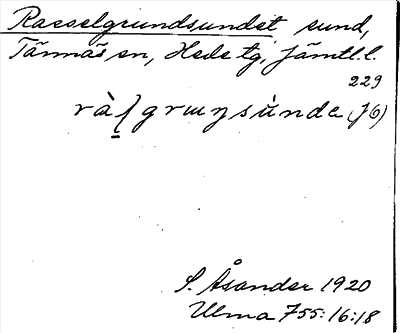 Rasselgrundsundet sund,
Tännäs sn, Hede tg, Jämtl. l.
229
rà̱ʃgrɯŋsùnda (J6)
S. Åsander 1920
Ulma 755:16:18